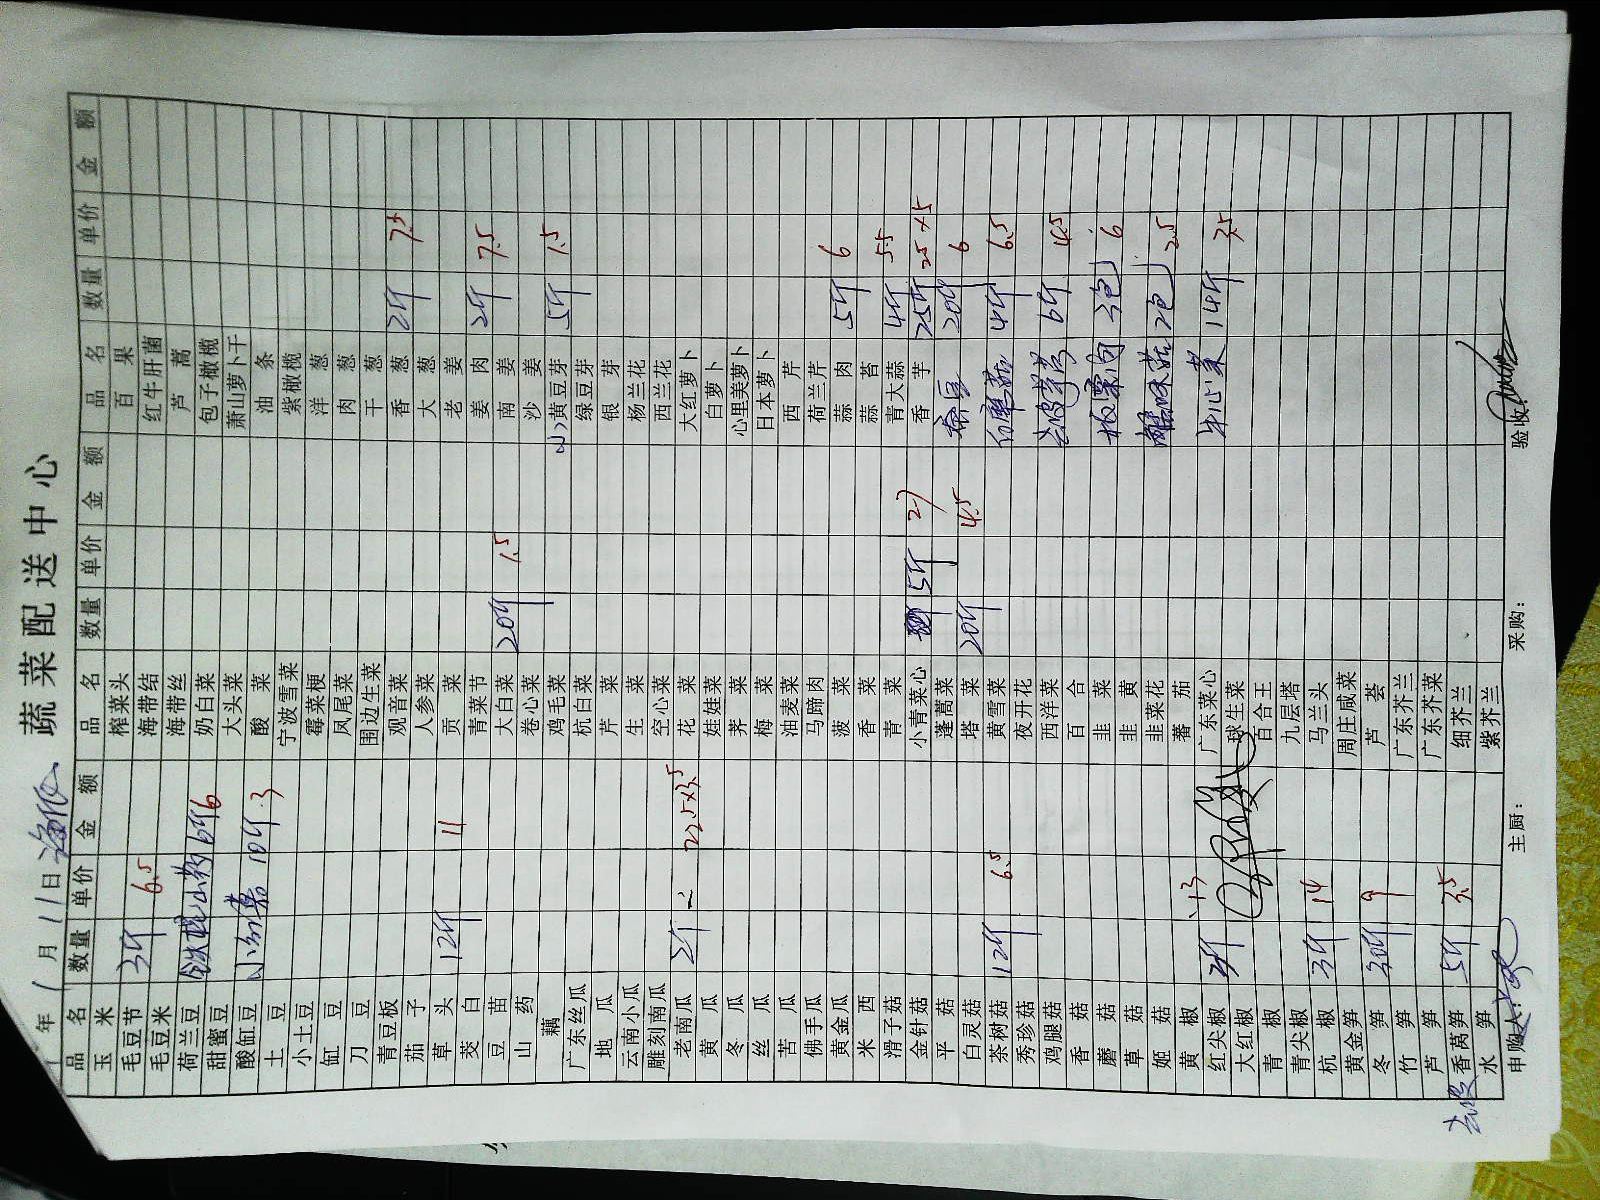 蔬菜配送中心
年 1月11日
品名 数量 单价 金额 品名 数量 单价 金额 品名 数量 单价 金额
玉米 榨菜头 百果
毛豆节 3斤 6.5 海带结 红牛肝菌
毛豆米 海带丝 芦蒿
荷兰豆 铁棍山药 6斤 6 奶白菜 包子橄榄
甜蜜豆 大头菜 萧山萝卜干
酸缸豆 10斤 3 酸菜 油条
土豆 宁波雪菜 紫橄榄
小土豆 霉菜梗 洋葱
缸豆 凤尾菜 肉葱
刀豆 围边生菜 干葱
青豆板 观音菜 香葱 2斤
茄子 人参菜 大葱
草头 12斤 11 贡菜 老姜
茭白 青菜节 姜肉 2斤 7.5
豆苗 大白菜 20斤 1.5 南姜
山药 卷心菜 沙姜
藕 鸡毛菜 小黄豆芽 5斤 1.5
广东丝瓜 杭白菜 绿豆芽
地瓜 芹菜 银芽
云南小瓜 生菜 杨兰花
雕刻南瓜 空心菜 西兰花
老南瓜 2斤 2 22.5×3.5 花菜 大红萝卜
黄瓜 娃娃菜 白萝卜
冬瓜 荠菜 心里美萝卜
丝瓜 梅菜 日本萝卜
苦瓜 油麦菜 西芹
佛手瓜 马蹄肉 荷兰芹
黄金瓜 菠菜 蒜肉 5斤 6
米西 香菜 蒜苔
滑子菇 青菜 青大蒜 4斤 5.5
金针菇 小青菜心 15斤 香芋 25斤
平菇 蓬蒿菜 20斤 6
白灵菇 塔菜 20斤 4.5
茶树菇 12斤 6.5 黄雪菜 白蘑菇 4斤 6.5
秀珍菇 夜开花
鸡腿菇 西洋菜 去皮芋艿 6斤 4.5
香菇 百合
蘑菇 韭菜 板栗肉 3包 6
草菇 韭黄
姬菇 韭菜花 2包 2.5
黄椒 蕃茄
红尖椒 13 广东菜心 牛心菜 14斤 3.5
大红椒 球生菜
青椒 百合王
青尖椒 九层塔
杭椒 3斤 14 马兰头
黄金笋 周庄咸菜
冬笋 30斤 9 芦荟
竹笋 广东芥兰
芦笋 广东芥菜
去皮香莴笋 5斤 3.5 细芥兰
水笋 紫芥兰
申购: 主厨: 采购: 验收: